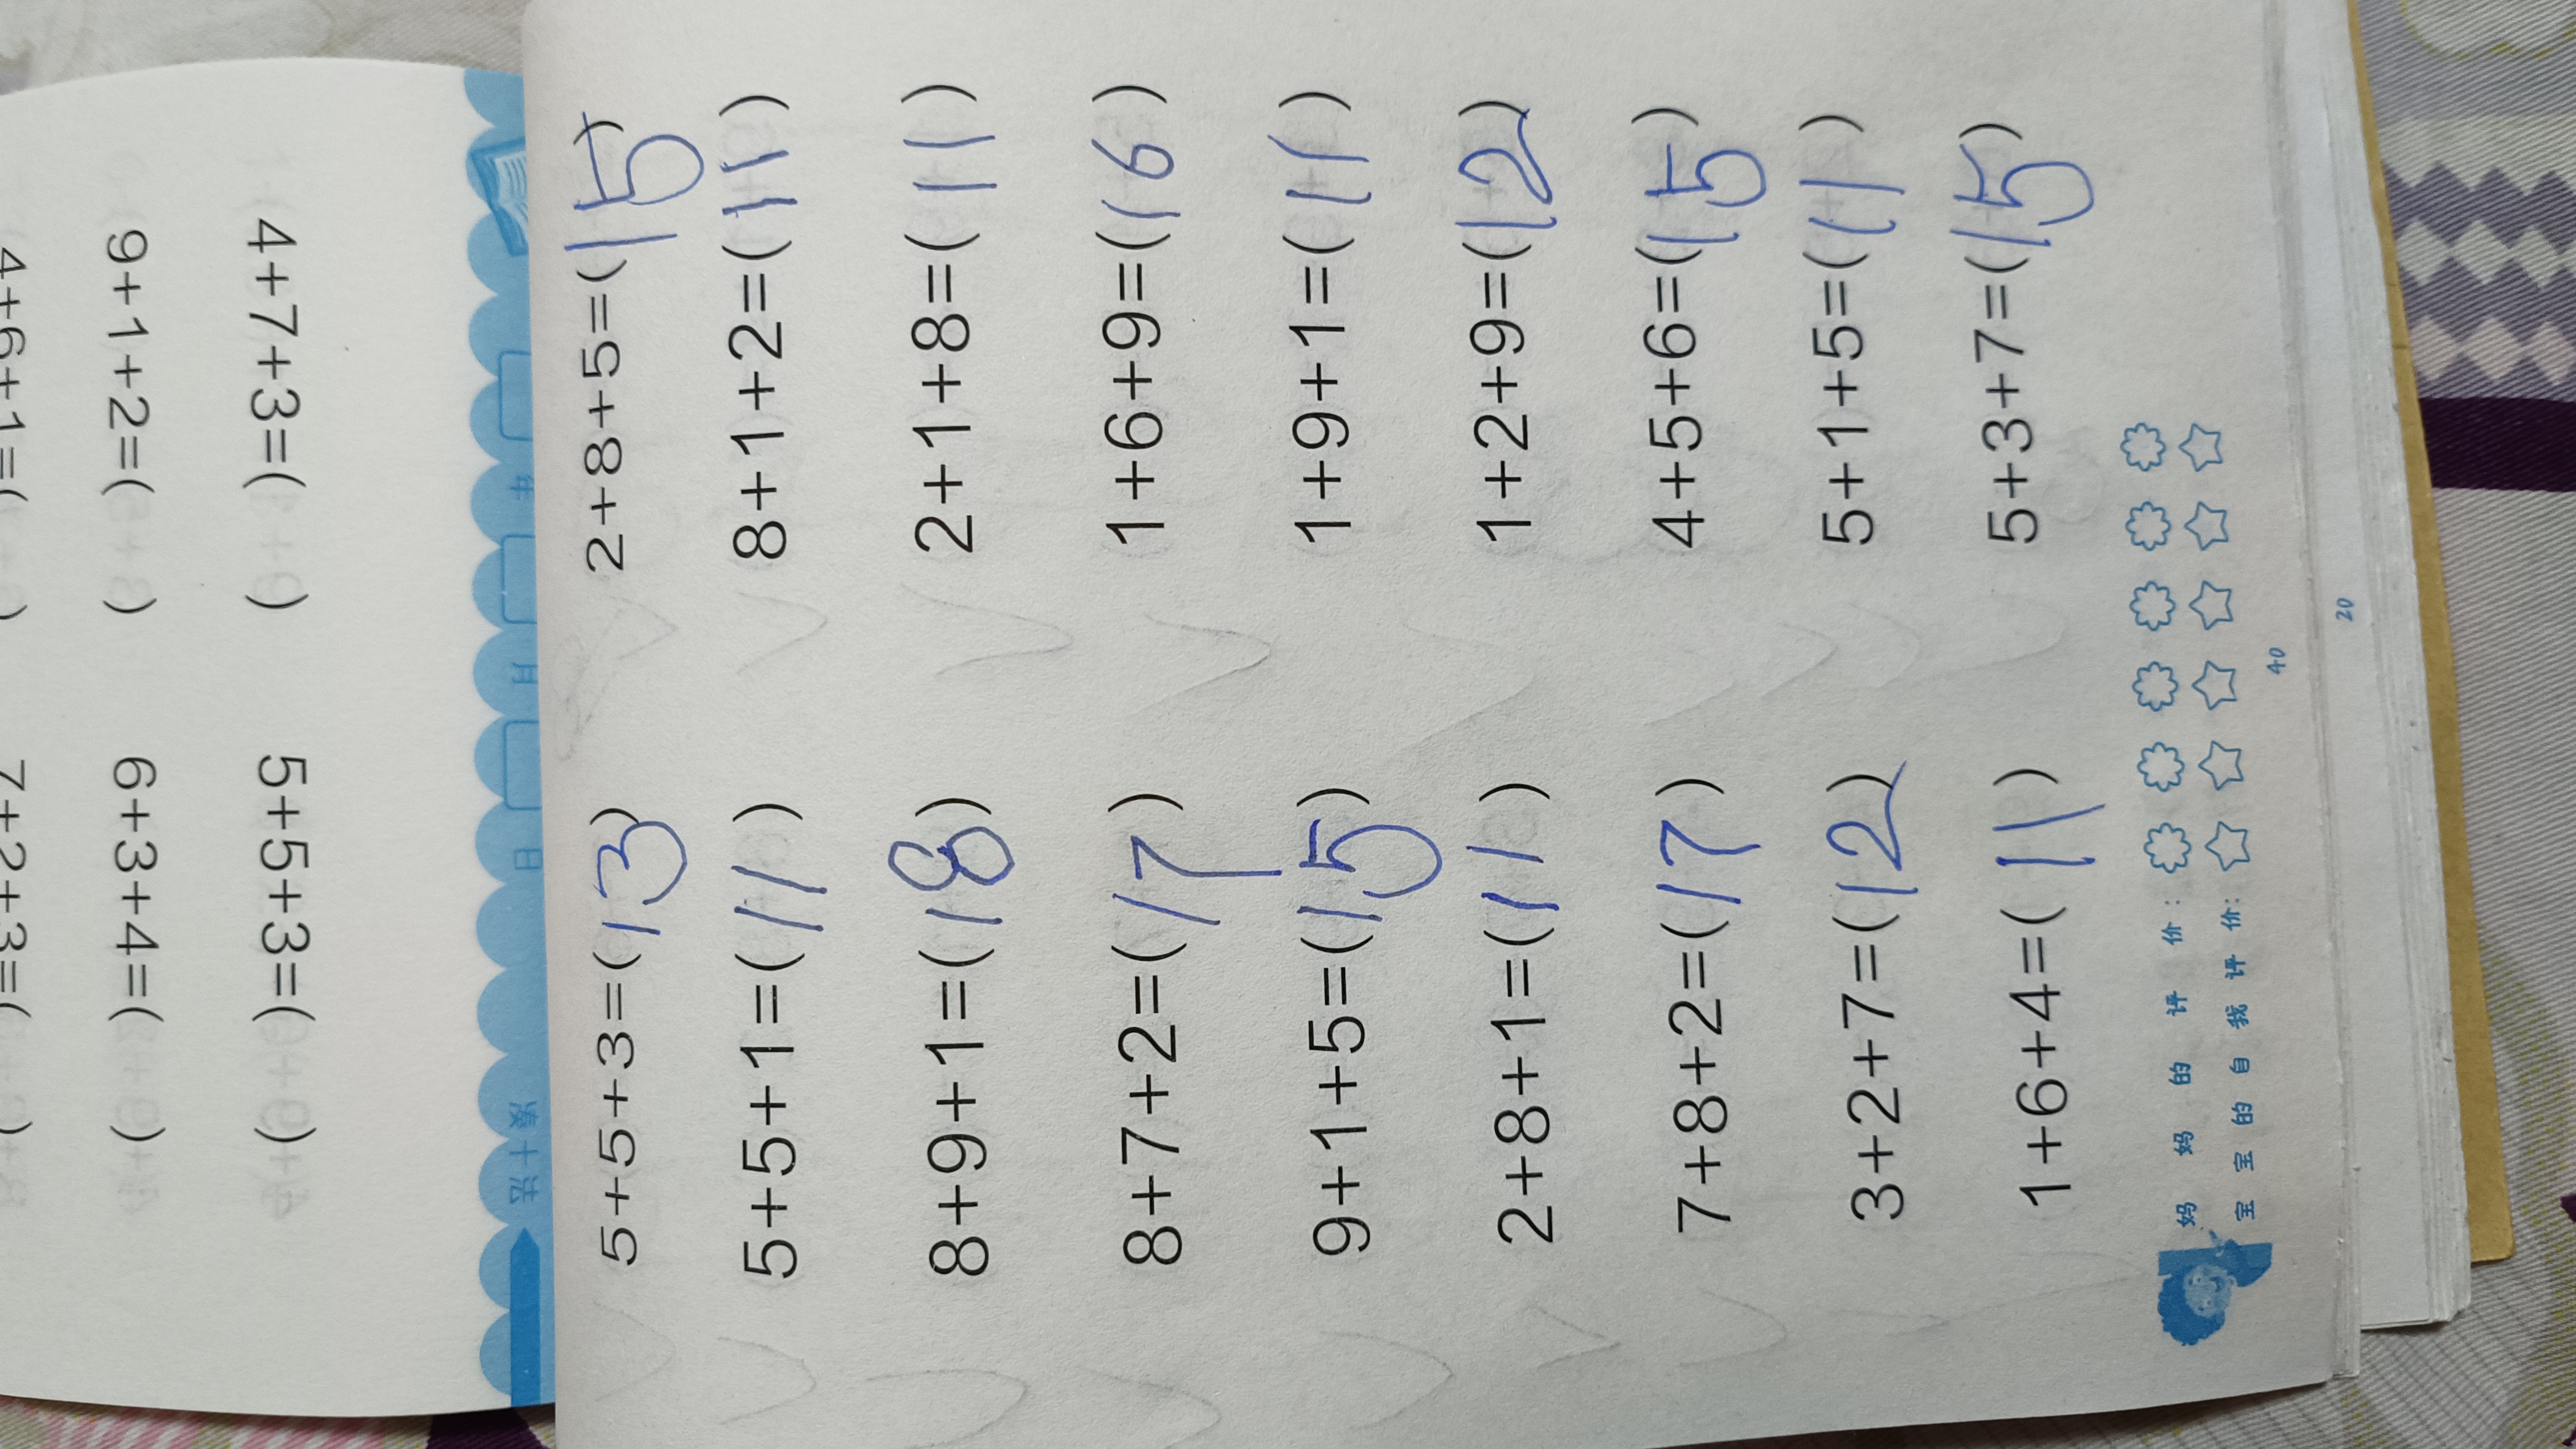 5+5+3=(13) 2+8+5=(15)
5+5+1=(11) 8+1+2=(11)
8+9+1=(18) 2+1+8=(11)
8+7+2=(17) 1+6+9=(16)
9+1+5=(15) 1+9+1=(11)
2+8+1=(11) 1+2+9=(12)
7+8+2=(17) 4+5+6=(15)
3+2+7=(12) 5+1+5=(11)
1+6+4=(11) 5+3+7=(15)
妈妈的评价:
宝宝的自我评价:
40
20
4+7+3=( ) 5+5+3=( )
9+1+2=( ) 6+3+4=( )
4+6+1=( ) 7+2+3=( )
年 月 日
凑十法